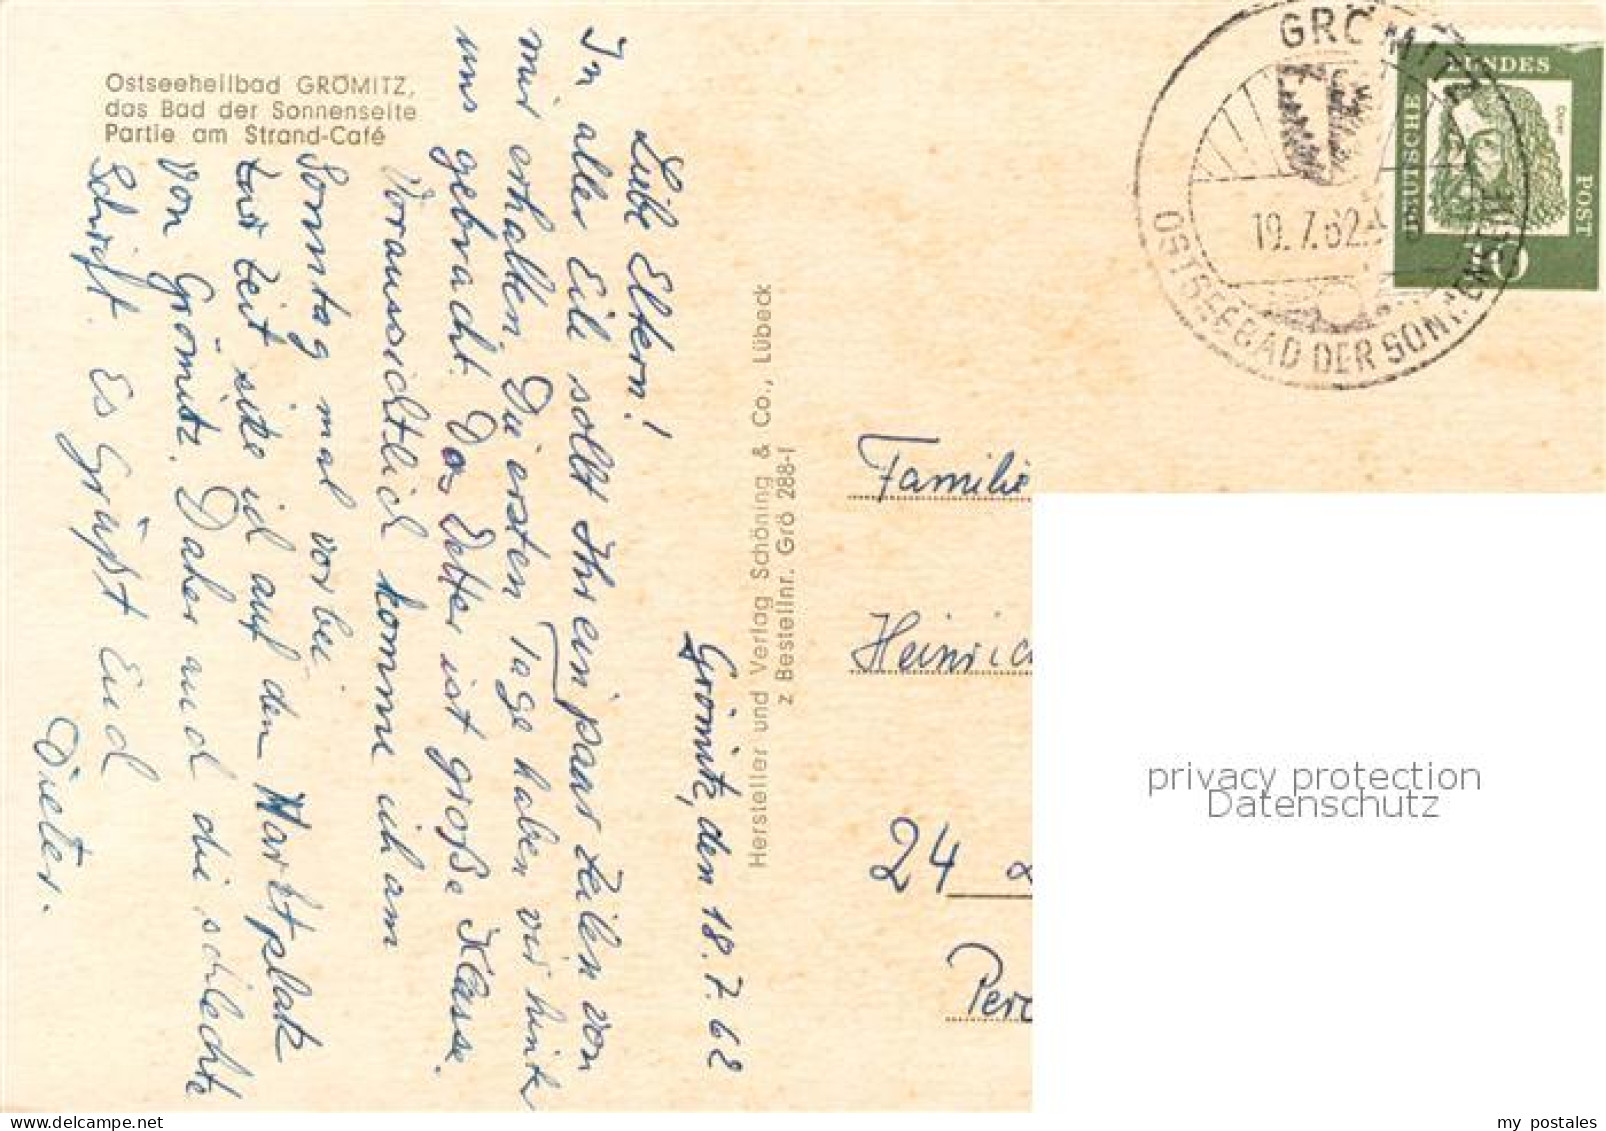 Ostseeheilbad GRÖMITZ,
das Bad der Sonnenseite
Partie am Strand-Café
Grömitz, den 18.7.62
Liebe Eltern!
In aller Eile sollt Ihr ein paar Zeilen von
mir erhalten. Die ersten Tage haben wir hinter
uns gebracht. Das Wetter ist große Klasse.
Voraussichtlich komme ich am
Sonntag mal vorbei
Zur Zeit sitze ich auf den Marktplatz
von Grömitz. Daher auch die schlechte
Schrift. Es Grüßt Eud
Dieter.
Hersteller und Verlag Schöning & Co., Lübeck
z Bestellnr. Grö 288-I
GRÖMITZ
19.7.62
OSTSEEBAD DER SONN
DEUTSCHE
BUNDES
POST
10
Familie
Heinric
24
Perc
privacy protection
Datenschutz
my_postales